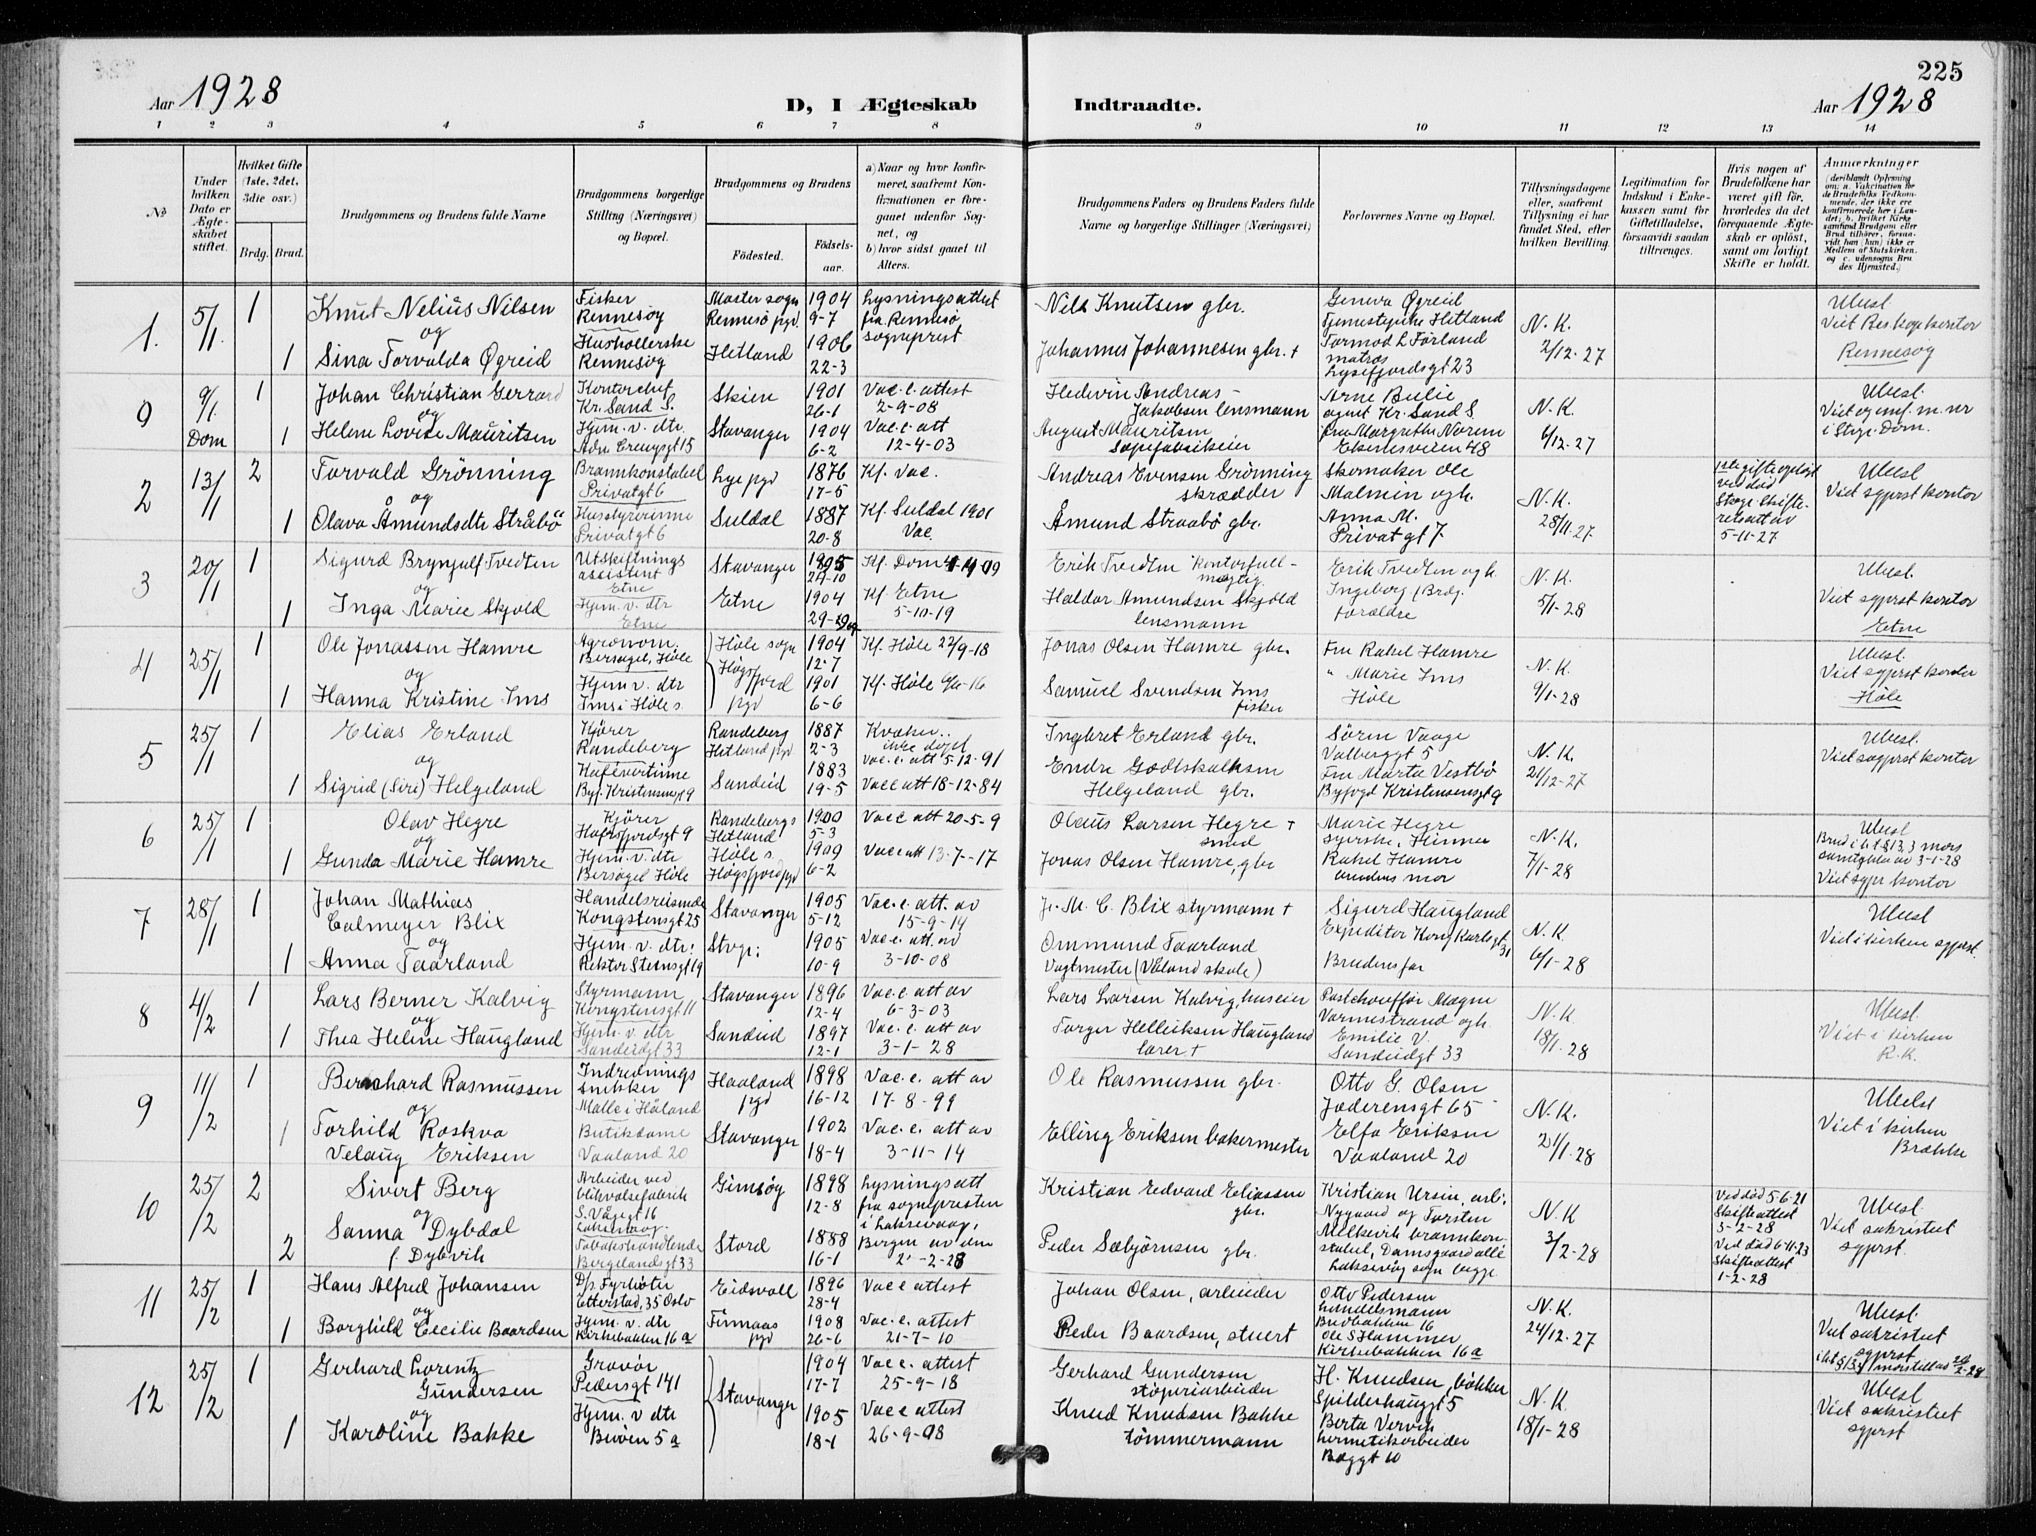 225
Aar 1928
D, I Ægteskab
Indtraadte.
Aar 1928
1 2 3 4 5 6 7 8 9 10 11 12 13 14
No
Under hvilken Dato er Ægteskabet stiftet.
Hvilket Gifte (1ste, 2det, 3die osv.)
Brdg. Brud.
Brudgommens og Brudens fulde Navne
Brudgommens borgerlige Stilling (Næringsvei) og Bopæl.
Brudgommens og Brudens
Fødested.
Fødselsaar.
a) Naar og hvor konfirmeret, saafremt Konfirmationen er foregaaet udenfor Sognet, og
b) hvor sidst gaaet til Alters.
Brudgommens Faders og Brudens Faders fulde Navne og borgerlige Stillinger (Næringsvei)
Forlovernes Navne og Bopæl.
Tillysningsdagene eller, saafremt Tillysning ei har fundet Sted, efter hvilken Bevilling.
Legitimation for Indskud i Enkekassen samt for Giftetilladelse, forsaavidt saadan tiltrænges.
Hvis nogen af Brudefolkene har været gift før, hvorledes da det foregaaende Ægteskab er opløst, samt om lovligt Skifte er holdt.
Anmærkninger
1. 5/1 1 Knut Nelius Nilsen
og
1 Sina Torvalda Øgreid
Fisker
Rennesøy
Husholderske
Rennesøy
Moster sogn
Rennesø pgd
Hetland
1904
9-7
1906
22-3
Lysningsattest
fra Rennesø
sogneprest
Nils Knutsen gbr.
Johannes Johannesen gbr. +
Geneva Øgreid
Tjenestepike Hetland
Tormod L Førland
matros
Lysefjordsgt 23
N. K.
2/12-27
Ubesl
Viet Res. kap. kontor
Rennesøy
0 9/1 Dom 1 Johan Christian Gerrard
og
1 Helene Lovise Mauritsen
Kontorchef
Kr. Sand S.
Hjem. v. dtr.
Skien
Stavanger
1901
26-1
1904
6-2
Vac. c. attest
2-9-08
Vac. c. att
12-4-03
Hedevin Andreas
Jakobsen lensmann
August Mauritsen
Arne Beilie
agent Kr. Sand S.
fru Margrethe Norem
48
N. K.
6/12-27
Ubesl.
2 13/1 2 Torvald Grønning
og
1 Olava Åmundsdtr Stråbø
Brannkonstabel
Privatgt 6
Husstyrerinne
Privatgt 6
Lye pgd
Suldal
1876
17-5
1887
20-8
Kf. Vac.
Kf. Suldal 1901
Vac.
Andreas Evensen Grønning
skrædder
Åmund Straabø gbr.
Skomaker Ole
Malmin og h.
Anna M.
Privatgt 7
N. K.
28/11-27
5-11-27
Ubesl
Viet sgprst kontor
3 20/1 1 Sigurd Brynjulf Tvedten
og
1 Inga Marie Skjold
Utskiftnings
assistent
Etne
Hjem. v. dtr
Etne
Stavanger
Etne
1904
Kf. Etne
5-10-19
Erik Tvedten kontorfull-
mægtig
Haldor Amundsen Skjold
lensmann
Erik Tvedten og h.
Ingeborg, Brdg.
foreldre
N. K.
5/1-28
Ubesl.
Viet sgprst kontor
Etne
4 25/1 1 Ole Jonassen Hamre
og
1 Hanna Kristine Ims
Agronom
Bersagel, Høle
Hjem. v. dtr
Ims i Høle s.
Høle sogn
Høgsfjord
pgd
1904
12-7
1901
6-6
Kf. Høle 22/9-18
Jonas Olsen Hamre gbr.
Samuel Svendsen Ims
fisker
Fru Rakel Hamre
" Marie Ims
Høle
N. K.
9/1-28
Ubesl.
Viet sgprst kontor
Høle
5 25/1 1 Elias Erland
og
1 Sigrid (Siri) Helgeland
Kjører
Randeberg
Kafevertinne
Randeberg
Hetland pgd
Sandeid
1887
2-3
1883
19-5
Kvæker
ikke døpt
Vac. c. att 5-12-91
Vac c att 18-12-84
Ingbret Erland gbr.
Endre Godtskalksen
Helgeland gbr.
Søren Vaage
Valberggt 5
Fru Marta Vestbø
N. K.
21/12-27
Ubesl.
Viet sogprst kontor
6 25/1 1 Olav Hegre
og
1 Gunda Marie Hamre
Kjører
Hafrsfjordsgt 9
Hjem. v. dtr
Bersagel Høle
Randebergs
Hetland
Høle s.
Høgsfjord pgd
1900
5-3
1909
6-2
Vac c att 20-5-9
Vac c att 13-7-17
Olaus Larsen Hegre +
smed
Jonas Olsen Hamre, gbr
Marie Hegre
syerske, Hinna
Rakel Hamre
brudens mor
N. K.
7/1-28
Ubesl
Viet sgpr kontor
7 28/1 1 Johan Mathias
Calmeyer Blix
og
1 Anna Taarland
Handelsreisende
Kongstensgt 25
Hjem. v. dtr.
Rektor Steensgt 19
Stavanger
Stvgr.
1905
5-12
1905
10-9
Vac. c. att. av
15-9-14
Vac. c. att. av
3-10-08
J. M. C. Blix styrmann +
Ommund Taarland
Vagtmester (Våland skole)
Sigurd Haugland
Expeditør Kong Karlsgt 31
Brudens far
N. K.
6/1-28
Ubesl
Viet i kirken sgprst.
8 4/2 1 Lars Berner Kalvig
og
1 Thea Helene Haugland
Styrmann
Kongstensgt 11
Hjem. v. dtr
Sandeidgt 33
Stavanger
Sandeid
1896
12-4
1897
12-1
Vac. c. att av
6-3-03
Vac. c. att av
3-1-28
Lars Larsen Kalvig, huseier
Torger Helliksen Haugland
lærer +
Postchauffør Magne
Varmestrand og h.
Emilie V.
Sandeidgt 33
N. K.
18/1-28
Ubesl.
Viet i kirken
R. K.
9 11/2 1 Bernhard Rasmussen
og
1 Torhild Roskva
Velaug Eriksen
Indrednings
snikker
Malle i Håland
Butikdame
Vaaland 20
Haaland
pgd
Stavanger
1898
16-12
1902
18-4
Vac. c. att av
17-8-99
Vac. c. att av
3-11-14
Ole Rasmussen gbr.
Elling Eriksen bakermester
Otto G. Olsen
Jæderensgt 65
Elfa Eriksen
Vaaland 20
N. K.
21/1-28
Ubesl
Viet i kirken
Brække
10 25/2 2 Sivert Berg
og
2 Sanna Dybdal
f. Dybvik
Arbeider ved
blikvalsefabrik
S. Vågegt 16
Laksevåg
Tobakshandlende
Bergelandsgt 33
Gimsøy
Stord
1898
12-8
1888
16-1
Lysningsatt
fra sognepresten
i Laksevaag,
Bergen av den
Kristian Edvard Eliassen
gbr.
Peder Sæbjørnsen gbr.
Kristian Ursin, arb.
Nygaard og Torsten
Melkevik brannkon-
stabel, Damsgaardallé
Laksevåg sogn begge
N. K
3/2-28
Ved død 5-6-21
Skifteattest
3-2-28
Ved død 6-11-23
Skifteattest
1-2-28
Ubesl.
Viet sakristiet
sgprst.
11 25/2 1 Hans Alfred Johansen
og
1 Borghild Cecilie Baardsen
D/s Fyrbøter
Etterstad, 35 Oslo
Hjem. v. dtr
Kirkebakken 16a
Eidsvoll
Finnaas
pgd
1896
28-4
1908
26-6
Vac c attest
Vac. c. attest
21-7-10
Johan Olsen, arbeider
Peder Baardsen, stuert
Otto Pedersen
handelsmann
Ole S Hammer
Kirkebakken 16a
N. K.
24/12-27
Ubesl.
Viet sakristiet
sgprst
12 25/2 1 Gerhard Lorentz
Gundersen
og
1 Karoline Bakke
Gravør
Pedersgt 141
Hjem. v dtr
Buøen 5a
Stavanger
1904
17-7
1905
18-1
Vac c. attest
25-9-18
Vac c attest
26-9-08
Gerhard Gundersen
støperiarbeider
Knud Knudsen Bakke
tømmermann
H. Knudsen, bakker
Spilderhauggt 5
Berta Vervik
hermetikarbeider
Bøggt 10
N. K.
18/1-28
Ubesl
Viet sakristiet
sgprst